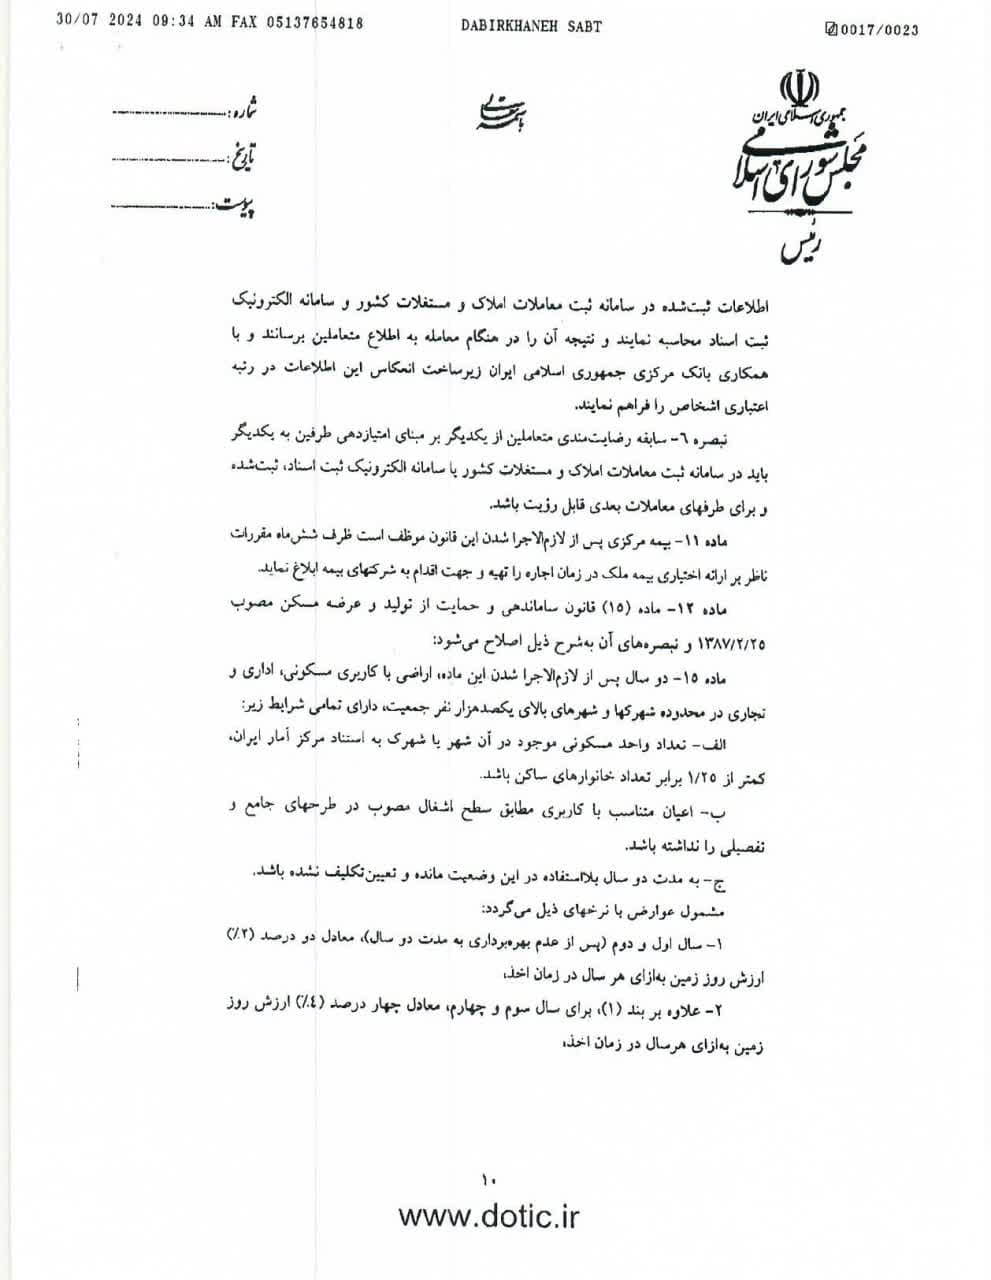 30/07 2024 09:34 AM FAX 05137654818 DABIRKHANEH SABT 0017/0023
جمهوری اسلامی ایران
مجلس شورای اسلامی
رئیس
باسمه تعالی
شماره:
تاریخ:
پیوست:
اطلاعات ثبت‌شده در سامانه ثبت معاملات املاک و مستغلات کشور و سامانه الکترونیک
ثبت اسناد محاسبه نمایند و نتیجه آن را در هنگام معامله به اطلاع متعاملین برسانند و با
همکاری بانک مرکزی جمهوری اسلامی ایران زیرساخت انعکاس این اطلاعات در رتبه
اعتباری اشخاص را فراهم نمایند.
تبصره ٦- سابقه رضایت‌مندی متعاملین از یکدیگر بر مبنای امتیازدهی طرفین به یکدیگر
باید در سامانه ثبت معاملات املاک و مستغلات کشور یا سامانه الکترونیک ثبت اسناد، ثبت‌شده
و برای طرفهای معاملات بعدی قابل رؤیت باشد.
ماده ۱۱- بیمه مرکزی پس از لازم‌الاجرا شدن این قانون موظف است ظرف شش‌ماه مقررات
ناظر بر ارائه اختیاری بیمه ملک در زمان اجاره را تهیه و جهت اقدام به شرکتهای بیمه ابلاغ نماید.
ماده ۱۲- ماده (۱٥) قانون ساماندهی و حمایت از تولید و عرضه مسکن مصوب
۱۳۸۷/۲/۲٥ و تبصره‌های آن به‌شرح ذیل اصلاح می‌شود:
ماده ۱٥- دو سال پس از لازم‌الاجرا شدن این ماده، اراضی با کاربری مسکونی، اداری و
تجاری در محدوده شهرکها و شهرهای بالای یکصدهزار نفر جمعیت، دارای تمامی شرایط زیر:
الف- تعداد واحد مسکونی موجود در آن شهر یا شهرک به استناد مرکز آمار ایران،
کمتر از ۱/۲٥ برابر تعداد خانوارهای ساکن باشد.
ب- اعیان متناسب با کاربری مطابق سطح اشغال مصوب در طرحهای جامع و
تفصیلی را نداشته باشد.
ج- به مدت دو سال بلااستفاده در این وضعیت مانده و تعیین‌تکلیف نشده باشد.
مشمول عوارض با نرخهای ذیل می‌گردد:
۱- سال اول و دوم (پس از عدم بهره‌برداری به مدت دو سال)، معادل دو درصد (۲٪)
ارزش روز زمین به‌ازای هر سال در زمان اخذ،
۲- علاوه بر بند (۱)، برای سال سوم و چهارم، معادل چهار درصد (٤٪) ارزش روز
زمین به‌ازای هرسال در زمان اخذ،
۱۰
www.dotic.ir